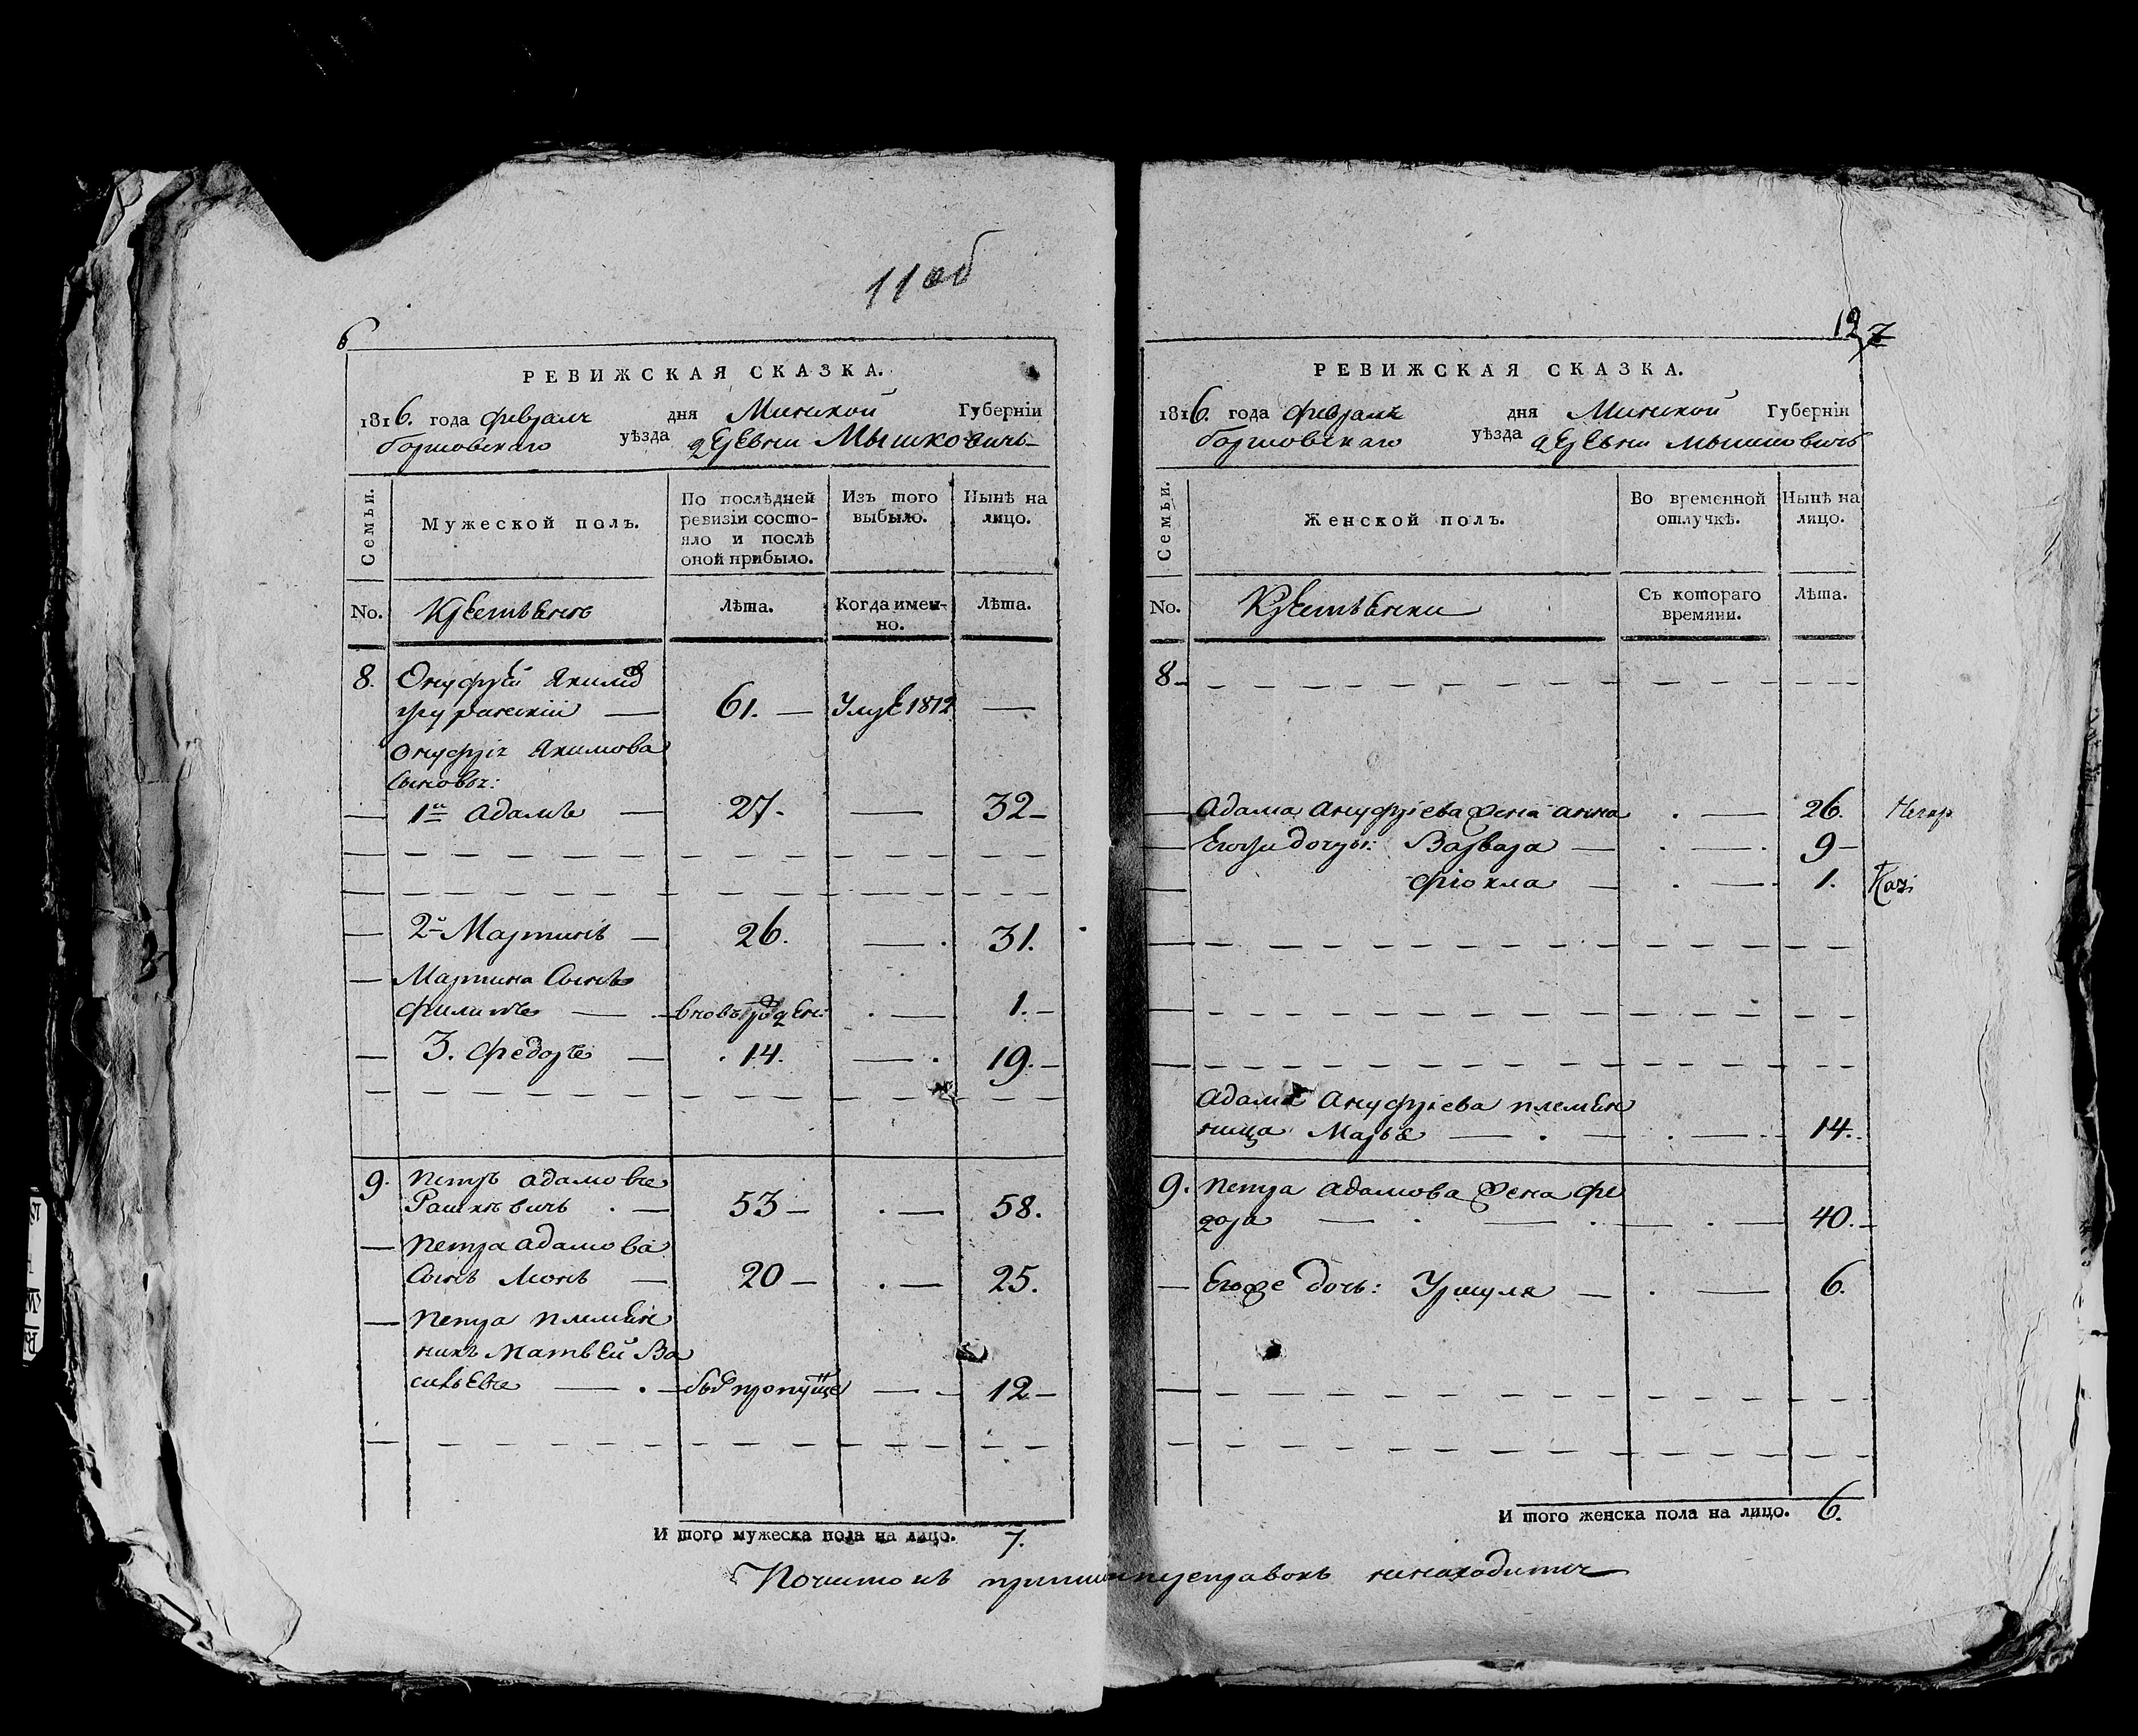 11 об
6
РЕВИЖСКАЯ СКАЗКА.
1816. года февраля дня Минской Губерніи
борисовскаго уѣзда деревни Мышковичь
Семьи. Мужеской полъ. По послѣдней ревизіи состояло и послѣ оной прибыло. Изъ того выбыло. Нынѣ на лицо.
No. Крестьянъ Лѣта. Когда именно. Лѣта.
8. Онуфрей Якимов
61. — Умре 1812 —
Онуфрія Якимова
Сыновья:
1й Адамъ — 27. — 32
2й Мартинъ — 26. — 31.
Мартина Сынъ
Филипъ — вновь рожден: — 1.
3. Федоръ — 14. — 19.
9. Петръ Адамовъ
Рашкевичь — 53 — 58.
Петра Адамова
Сынъ Монъ — 20 — 25.
Петра племян
никъ Матвей Ва
сильевъ — был пропущен — 12
И того мужеска пола на лицо. 7.
12 7
РЕВИЖСКАЯ СКАЗКА.
1816. года февраля дня Минской Губерніи
борисовскаго уѣзда деревни Мышковичь
Семьи. Женской полъ. Во временной отлучкѣ. Нынѣ на лицо.
No. Крестьянки Съ котораго времяни. Лѣта.
8
Адама Ануфріева жена анна — 26.
Егожъ дочери: Варвара — 9
Фіокла — 1.
Адама Ануфріева племян
ница Марья — 14.
9. Петра Адамова жена Фе
дора — 40.
Егоже дочь: Уршуля — 6.
И того женска пола на лицо. 6.
Почистокъ приписокъ и переправокъ ненаходится